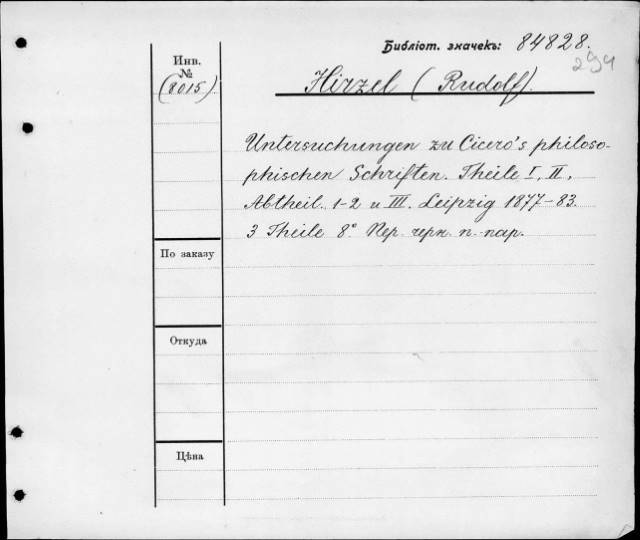 Библіот. значекъ: 84828.
294
Инв.
№
(8015)
Hirzel (Rudolf).
Untersuchungen zu Cicero's philoso-
phischen Schriften. Theile I, II,
Abtheil. 1-2 u III. Leipzig 1877-83.
3 Theile 8º Пер. черн. п.-пар.
По заказу
Откуда
Цѣна